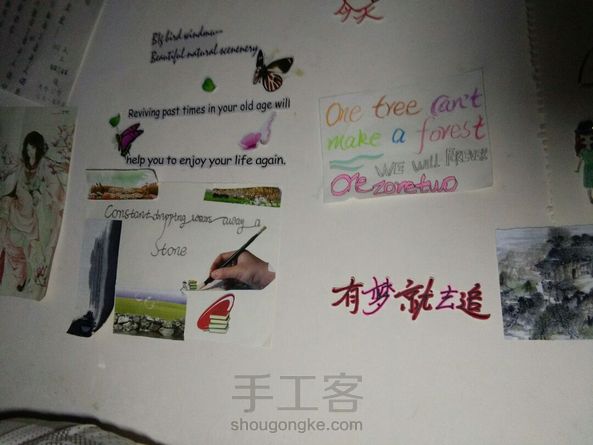 今天
Big bird windmu---
Beautiful natural scenenery
Reviving past times in your old age will
help you to enjoy your life again.
One tree can't
make a forest
WE WILL FOREVER
One zonetwo
Constant dripping wears away a
Stone
有梦就去追
手工客
shougongke.com